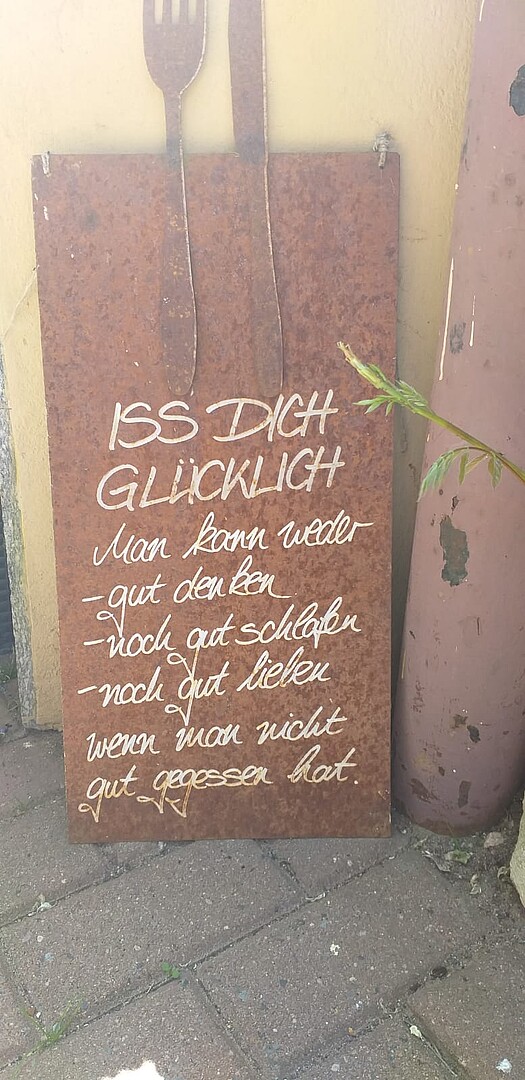 ISS DICH
GLÜCKLICH
Man kann weder
-gut denken
-noch gut schlafen
-noch gut lieben
wenn man nicht
gut gegessen hat.